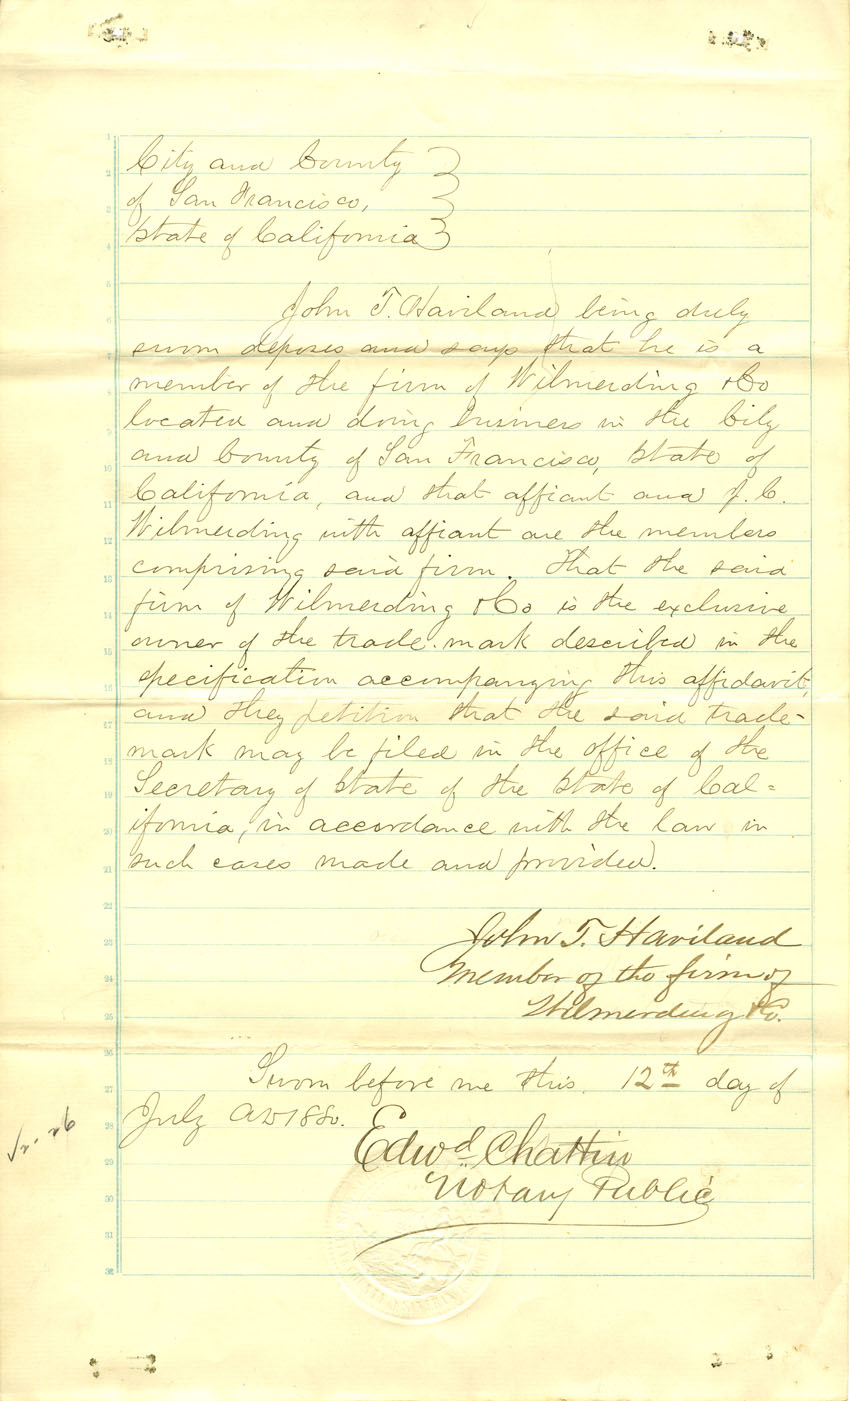 City and County
of San Francisco,
State of California
John T. Haviland being duly
sworn deposes and says that he is a
member of the firm of Wilmerding & Co
located and doing business in the City
and County of San Francisco, State of
California, and that affiant and J. C.
Wilmerding with affiant are the members
comprising said firm. That the said
firm of Wilmerding & Co is the exclusive
owner of the trade-mark described in the
specification accompanying this affidavit,
and they petition that the said trade-
mark may be filed in the office of the
Secretary of State of the State of Cal=
ifornia, in accordance with the law in
such cases made and provided.
John T. Haviland
Member of the firm of
Wilmerding & Co.
Sworn before me this 12th day of
July AD 1880.
Edwd Chattin
Notary Public